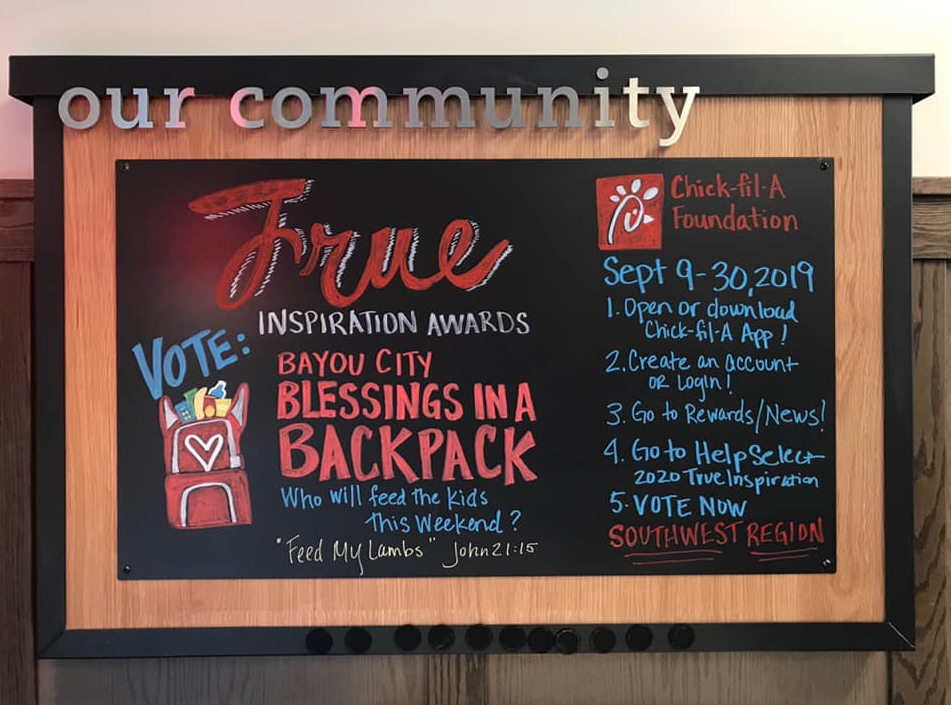 our community
True
INSPIRATION AWARDS
VOTE:
BAYOU CITY
BLESSINGS IN A
BACKPACK
Who will feed the kids
this Weekend?
"Feed My Lambs" John 21:15
Chick-fil-A
Foundation
Sept 9-30, 2019
1. Open or download
Chick-fil-A App!
2. Create an account
OR Login!
3. Go to Rewards/News!
4. Go to Help Select
2020 True Inspiration
5. VOTE NOW
SOUTHWEST REGION